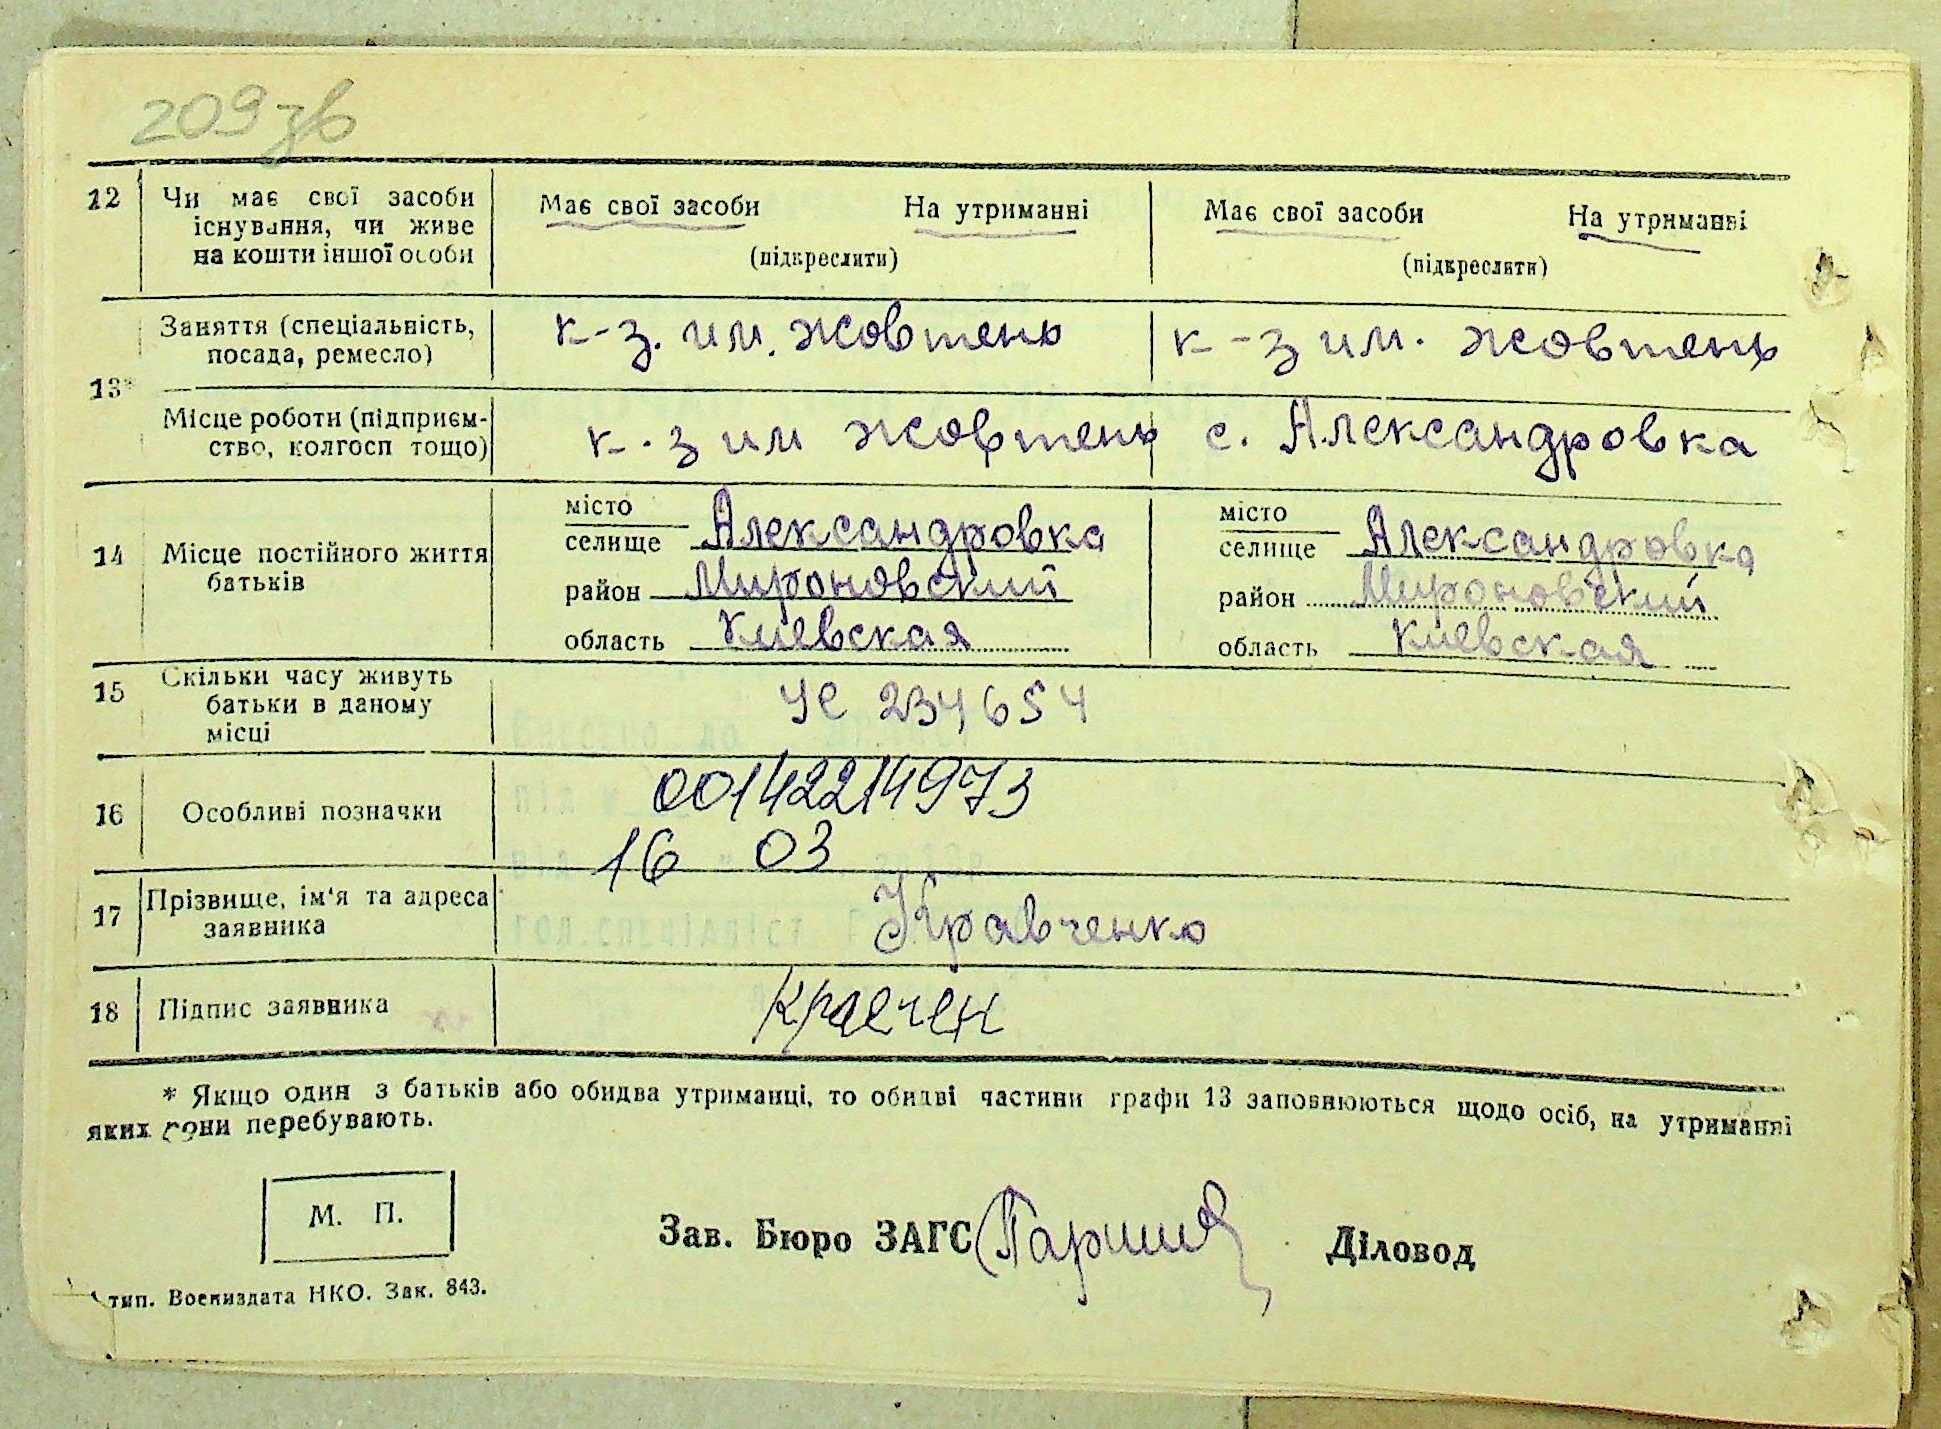 209 зв
12 Чи має свої засоби існування, чи живе на кошти іншої особи
Має свої засоби На утриманні
(підкреслити)
Має свої засоби На утриманні
(підкреслити)
13*
Заняття (спеціальність, посада, ремесло)
к-з. им. жовтень
к-з им. жовтень
Місце роботи (підприємство, колгосп тощо)
к-з им жовтень
с. Александровка
14 Місце постійного життя батьків
місто
селище Александровка
район Мироновский
область Киевская
місто
селище Александровка
район Мироновский
область Киевская
15 Скільки часу живуть батьки в даному місці
УС 234654
16 Особливі позначки
00142214973
16 03
17 Прізвище, ім'я та адреса заявника
Кравченко
18 Підпис заявника
* Якщо один з батьків або обидва утриманці, то обидві частини графи 13 заповнюються щодо осіб, на утриманні
яких вони перебувають.
М. П.
Зав. Бюро ЗАГС
Діловод
тип. Воениздата НКО. Зак. 843.